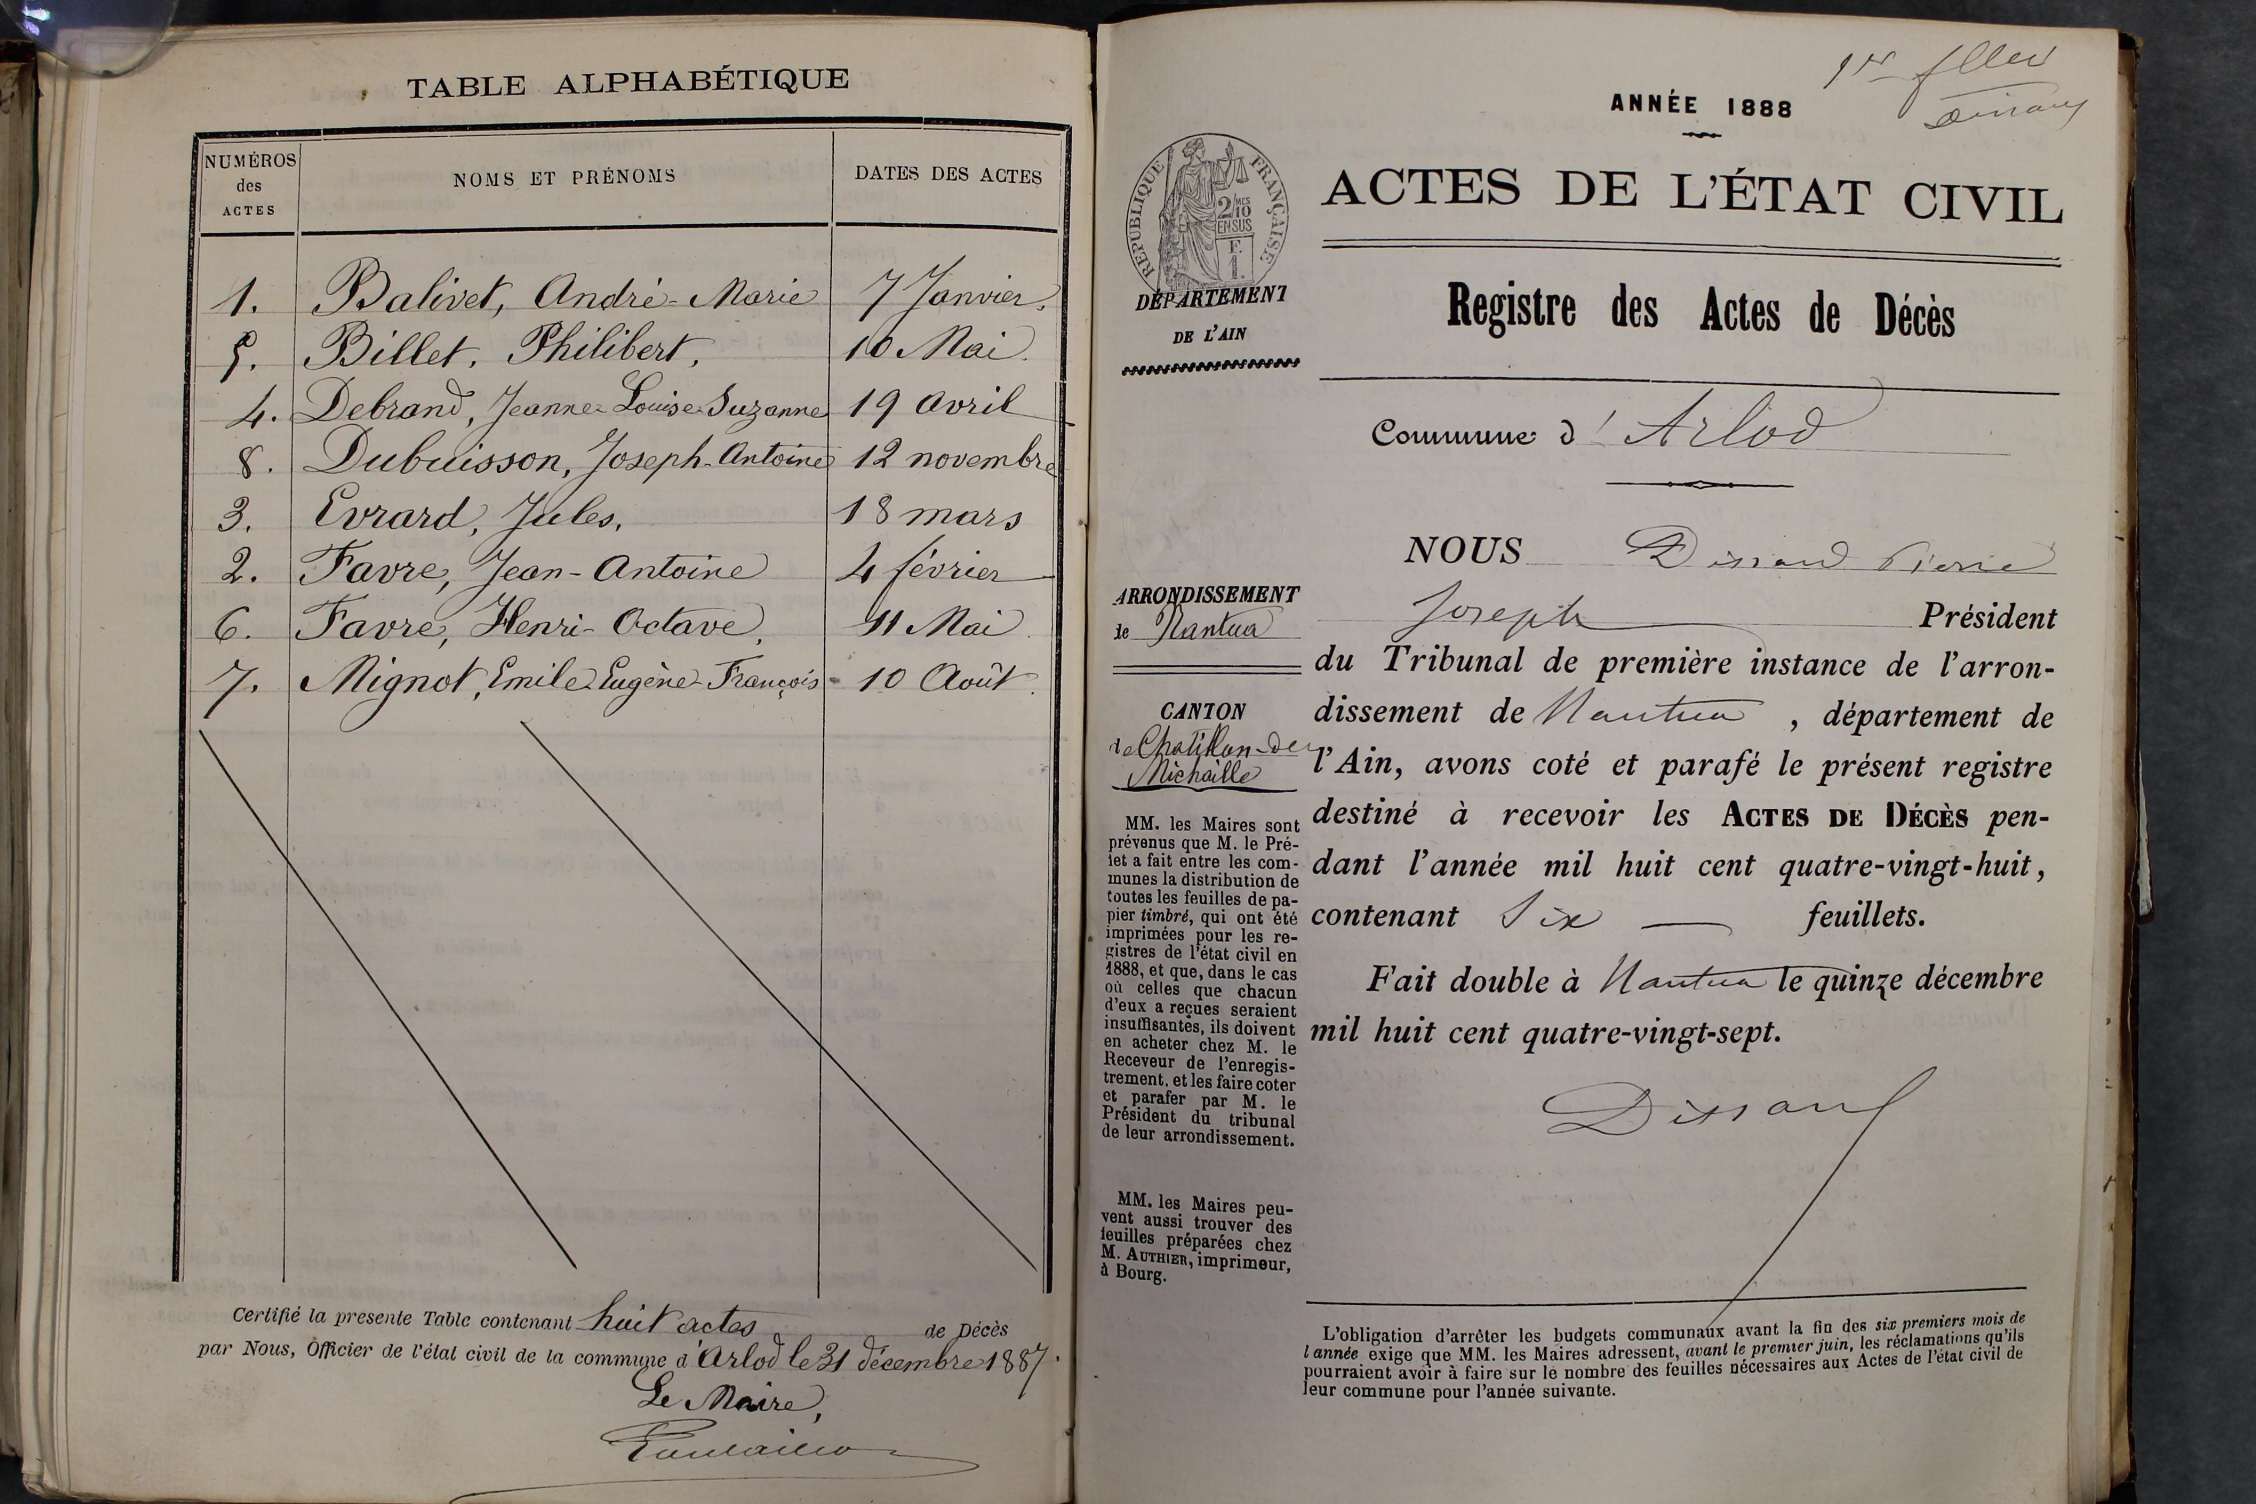 TABLE ALPHABÉTIQUE
NUMÉROS
des
ACTES
NOMS ET PRÉNOMS
DATES DES ACTES
1. Balivet, André-Marie 7 Janvier.
5. Billet, Philibert, 10 Mai.
4. Debrand, Jeanne-Louise-Suzanne 19 avril
8. Dubuisson, Joseph-Antoine 12 novembre
3. Evrard, Jules, 18 mars
2. Favre, Jean-Antoine 4 février
6. Favre, Henri-Octave, 11 Mai.
7. Mignot, Emile-Eugène-François 10 Août.
Certifié la presente Table contenant huit actes de Décès
par Nous, Officier de l'état civil de la commune d'Arlod le 31 décembre 1887.
Le Maire,
ANNÉE 1888
ACTES DE L'ÉTAT CIVIL
RÉPUBLIQUE FRANÇAISE
2/10 MES
EN SUS
F.
1.
DÉPARTEMENT
DE L'AIN
ARRONDISSEMENT
de Nantua
CANTON
de Chatillon-de-
Michaille
MM. les Maires sont
prévenus que M. le Pré-
fet a fait entre les com-
munes la distribution de
toutes les feuilles de pa-
pier timbré, qui ont été
imprimées pour les re-
gistres de l'état civil en
1888, et que, dans le cas
où celles que chacun
d'eux a reçues seraient
insuffisantes, ils doivent
en acheter chez M. le
Receveur de l'enregis-
trement, et les faire coter
et parafer par M. le
Président du tribunal
de leur arrondissement.
MM. les Maires peu-
vent aussi trouver des
feuilles préparées chez
M. AUTHIER, imprimeur,
à Bourg.
Registre des Actes de Décès
Commune d'Arlod
NOUS Dissard Pierre
Joseph Président
du Tribunal de première instance de l'arron-
dissement de Nantua, département de
l'Ain, avons coté et parafé le présent registre
destiné à recevoir les ACTES DE DÉCÈS pen-
dant l'année mil huit cent quatre-vingt-huit,
contenant Six feuillets.
Fait double à Nantua le quinze décembre
mil huit cent quatre-vingt-sept.
Dissard
L'obligation d'arrêter les budgets communaux avant la fin des six premiers mois de
l'année exige que MM. les Maires adressent, avant le premier juin, les réclamations qu'ils
pourraient avoir à faire sur le nombre des feuilles nécessaires aux Actes de l'état civil de
leur commune pour l'année suivante.